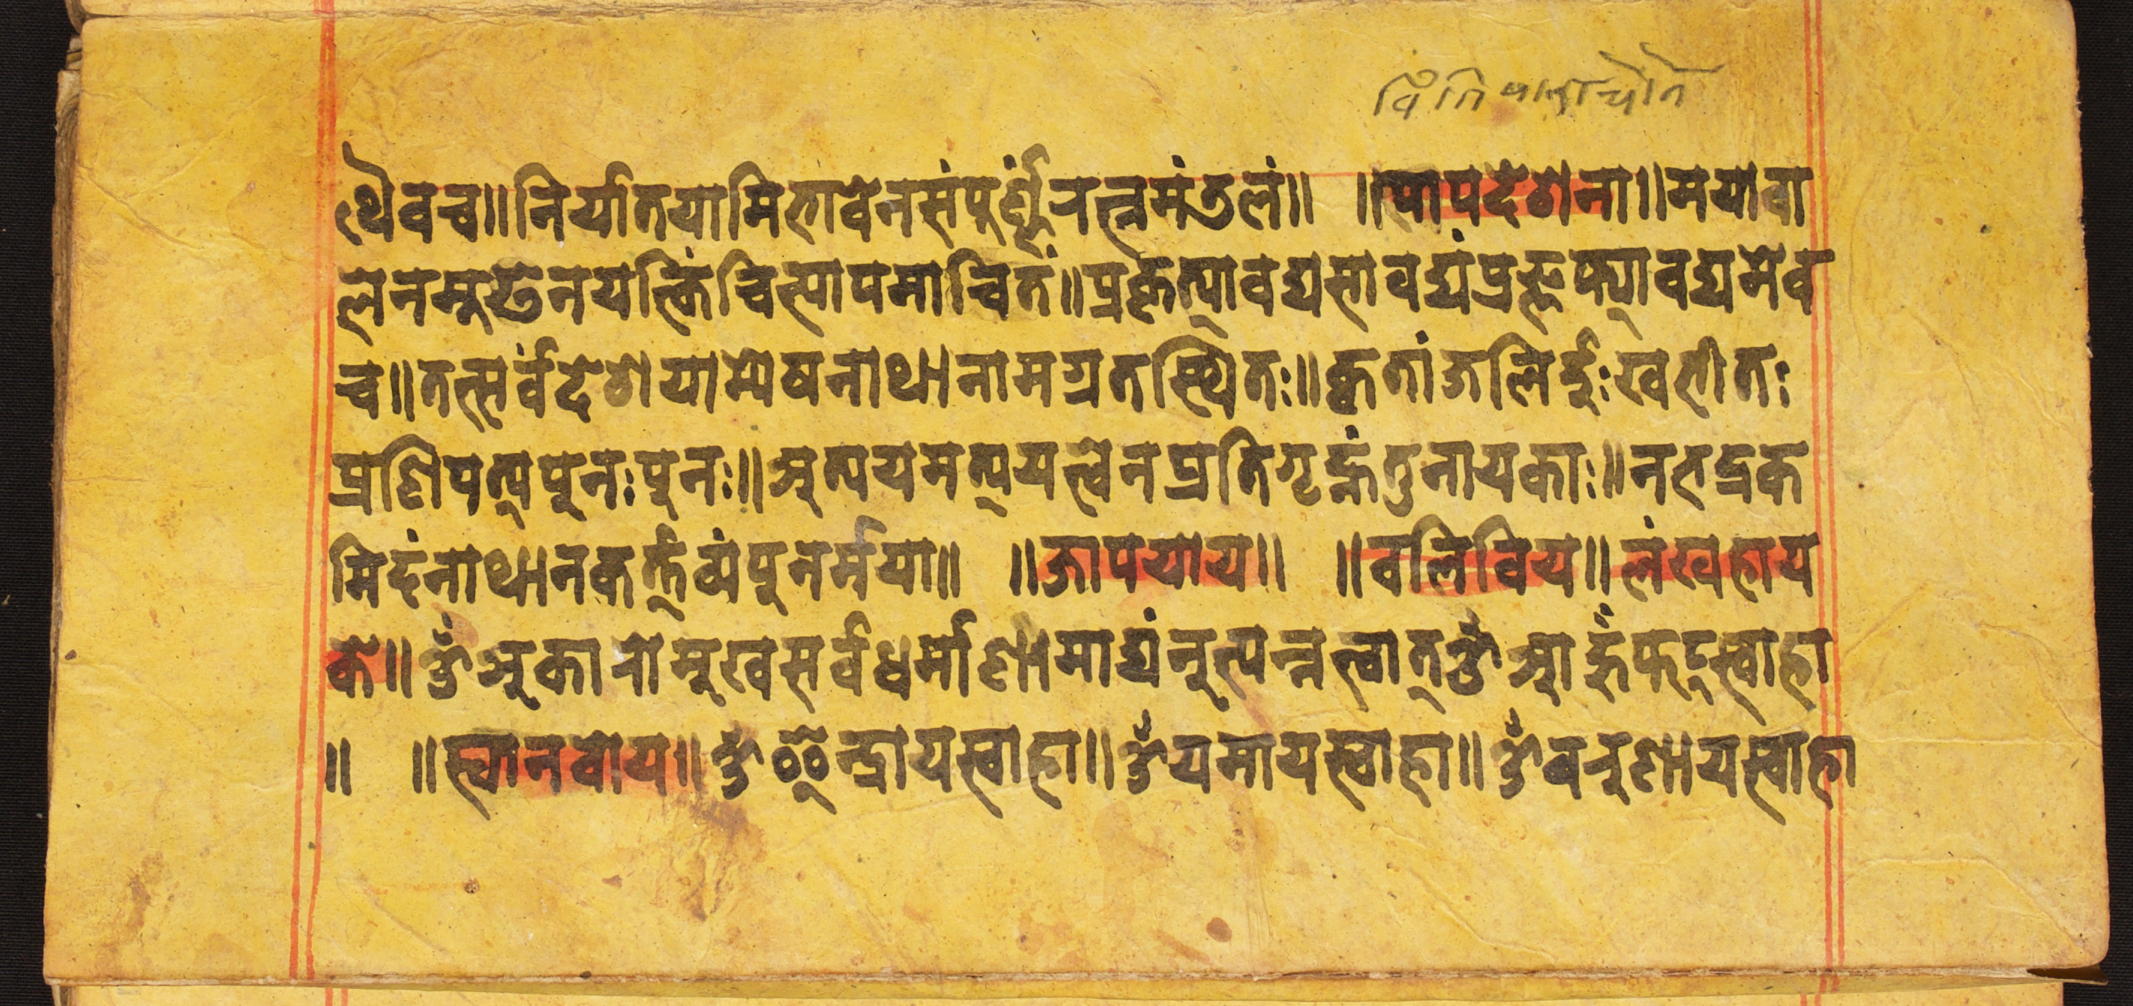 थैवच॥निर्यातयामिभावेनसंपुर्ण्णंरत्नमंडलं॥ ॥पापदेशना॥मयावा
लनमुढेनयत्किंचित्पापमाचितं॥प्रकृत्यावद्यसावद्यंप्रज्ञप्त्यावद्यमेव
च॥तत्सर्वंदेशयाम्येषनाथानामग्रतस्थितः॥कृतांजलिर्दुःखभीतः
प्रणिपत्यपुनःपुनः॥अत्ययमत्ययत्वेनप्रतिगृह्णंतुनायकाः॥नभद्रक
मिदंनाथानकर्त्तव्यंपुनर्मया॥ ॥जापयाय॥ ॥वलिविय॥लंखहाय
के॥ॐअकारोमुखसर्वधर्माणामाद्यंनुत्पन्नत्वात्ॐआःहुँफट्स्वाहा
॥ ॥स्वानवोय॥ॐइन्द्रायस्वाहा॥ॐयमायस्वाहा॥ॐवरुणायस्वाहा